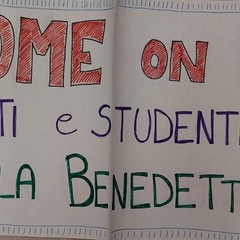 OME ON
TI e STUDENT
LA BENEDETT